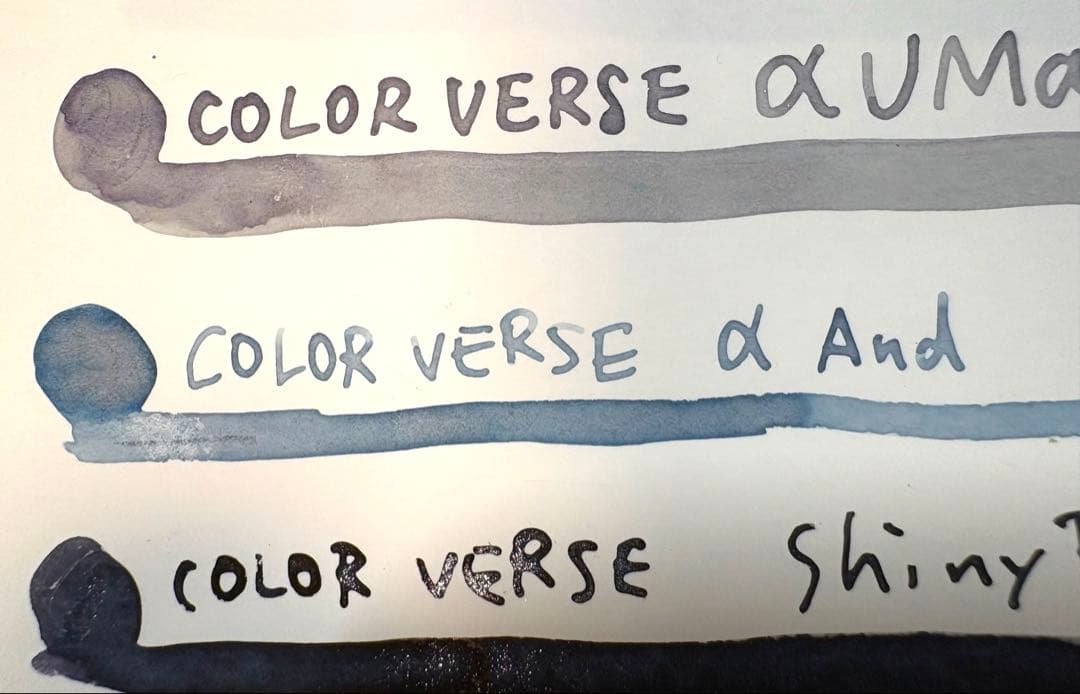 COLOR VERSE α UMa
COLOR VERSE α And
COLOR VERSE Shiny